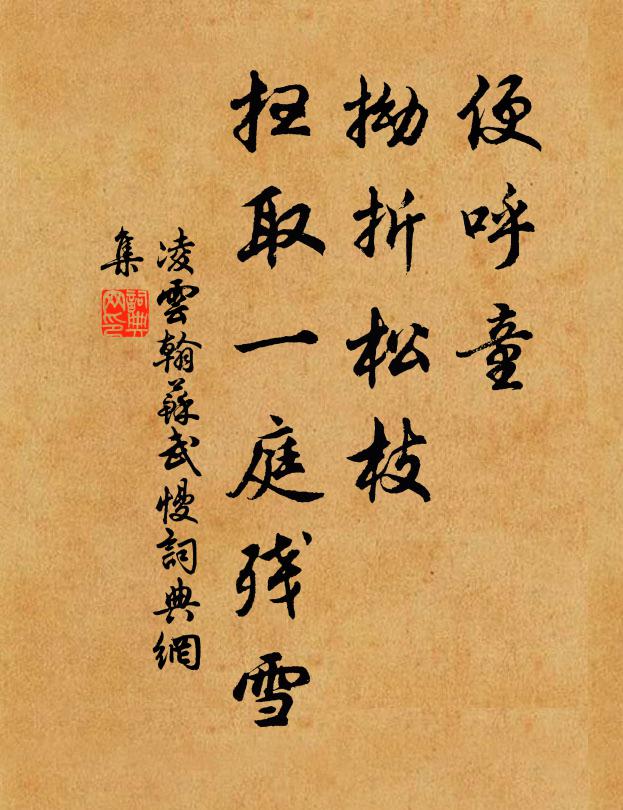 便呼童
拗折松枝
扫取一庭残雪
凌雲翰蘇武慢詞典網
集
詞典网印